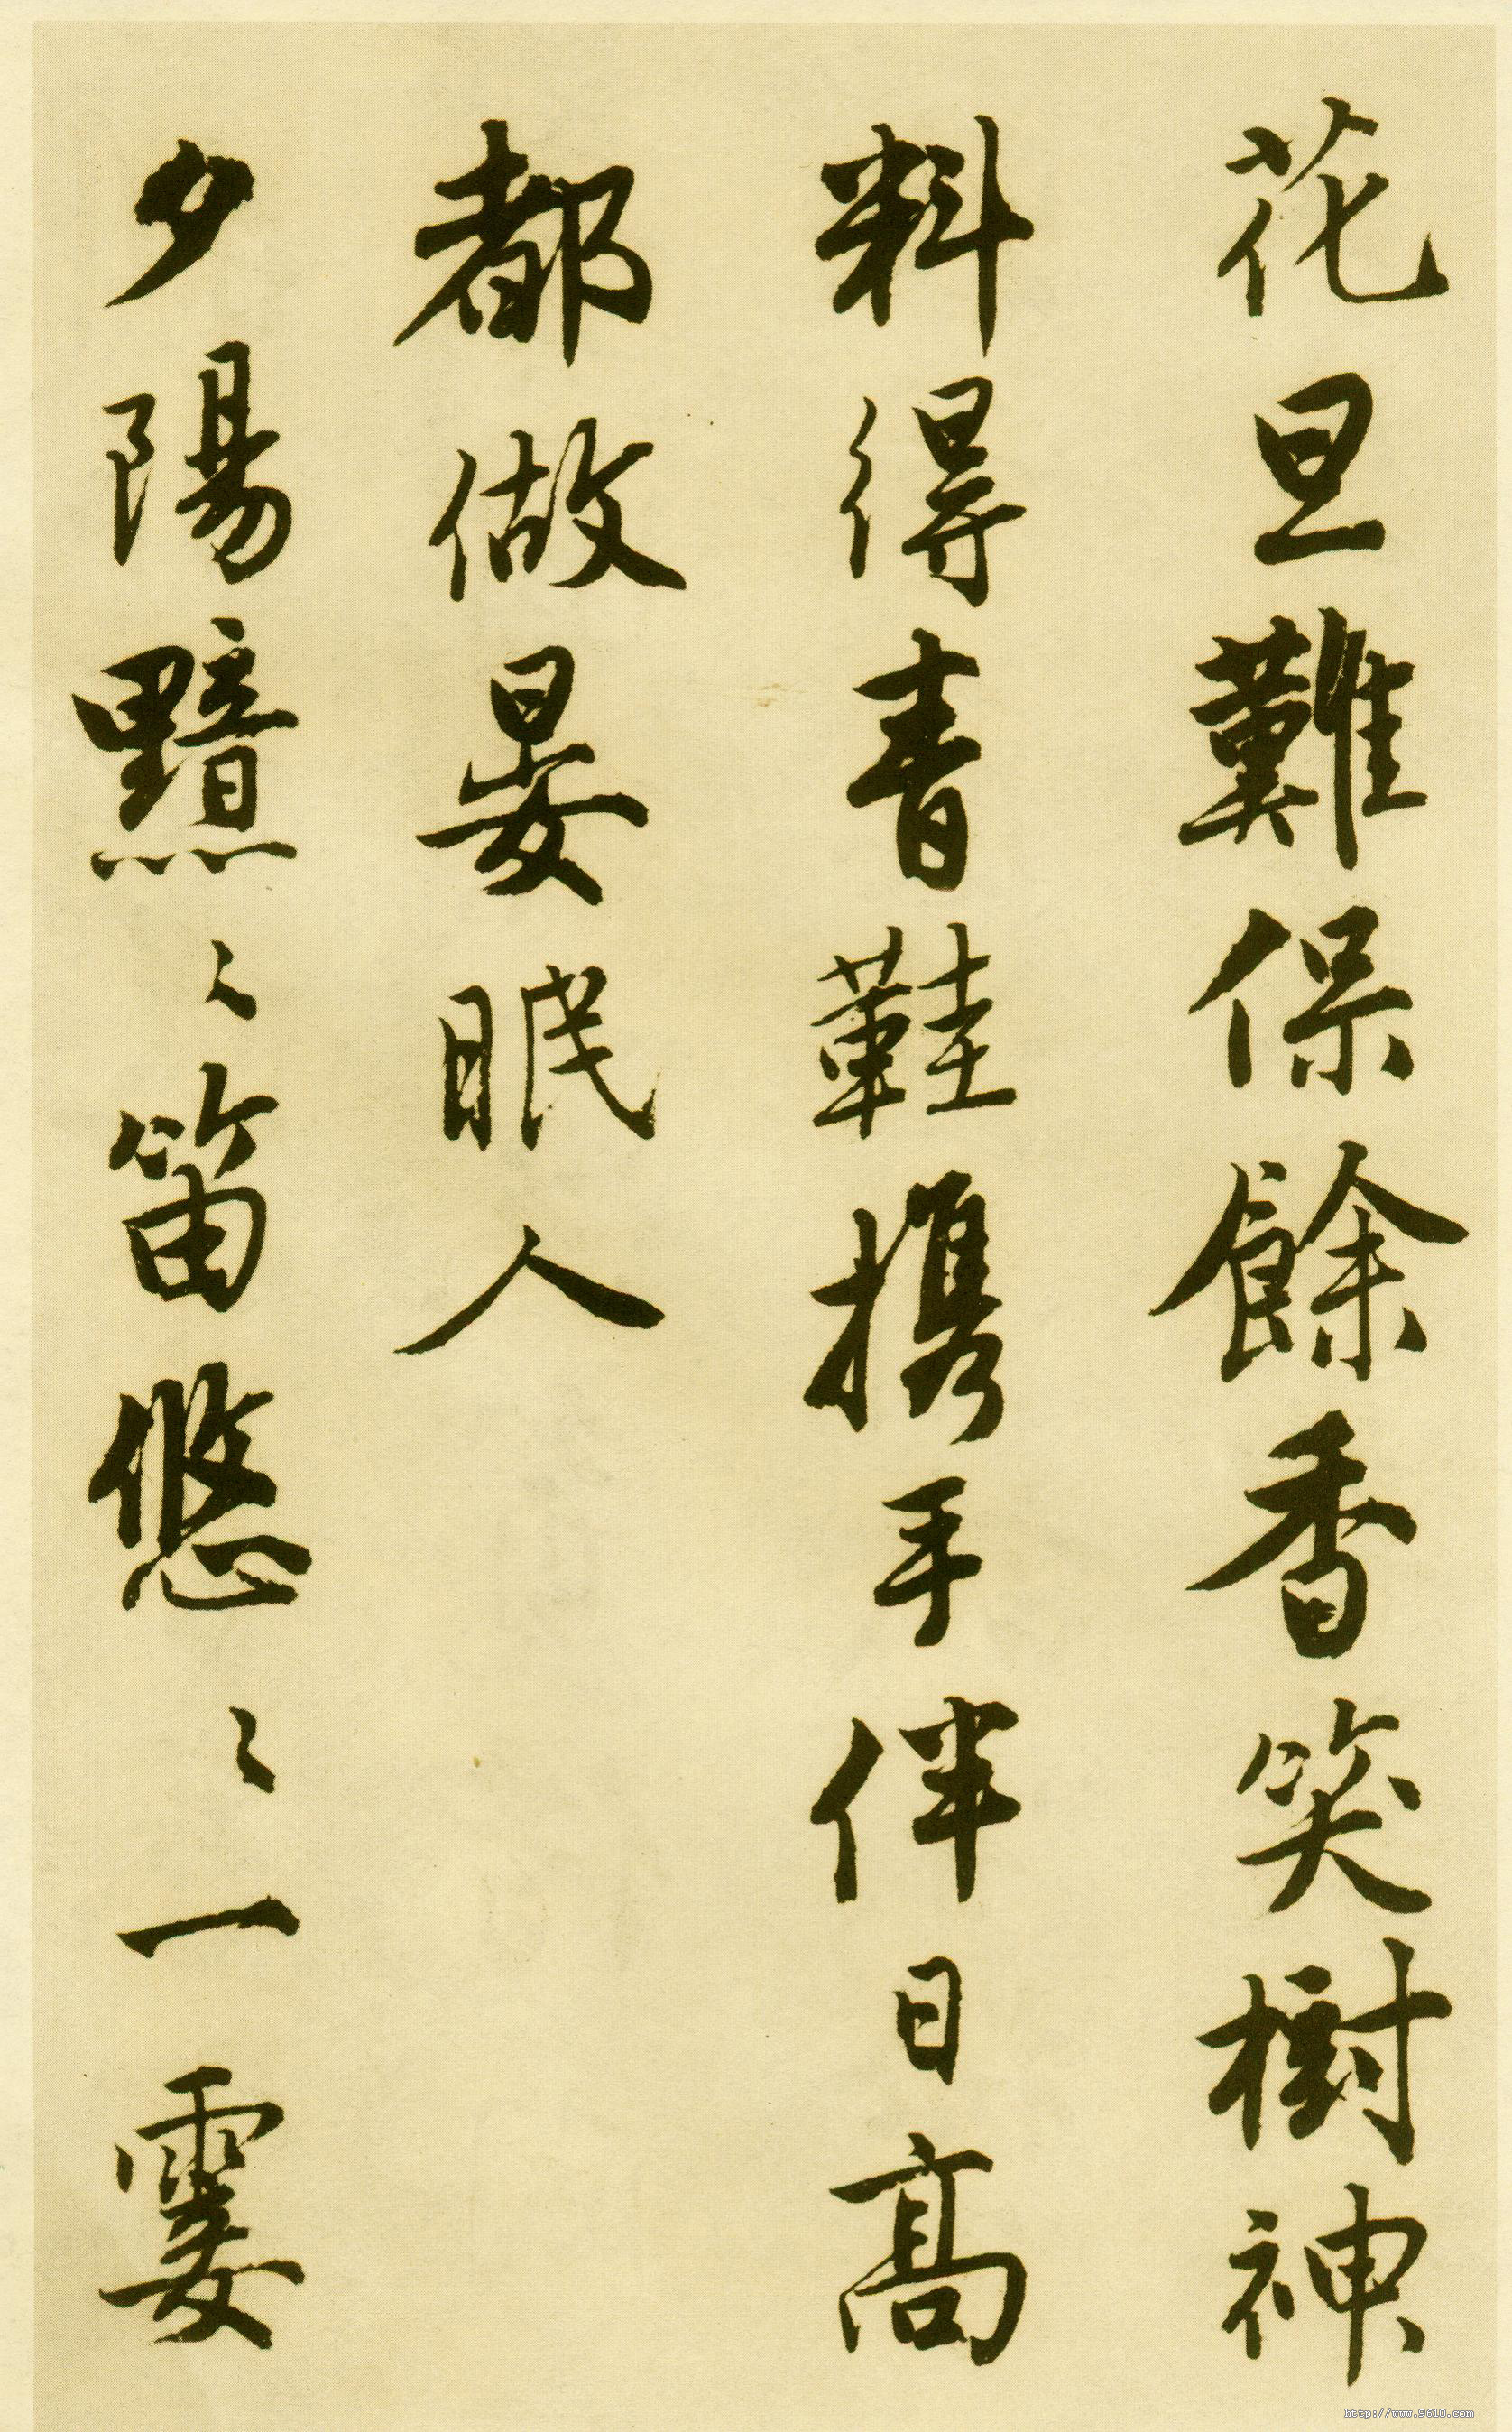 花旦難保餘香笑樹神
料得青鞋携手伴日高
都做晏眠人
夕陽黯〻笛悠〻一霎
http://www.9610.com